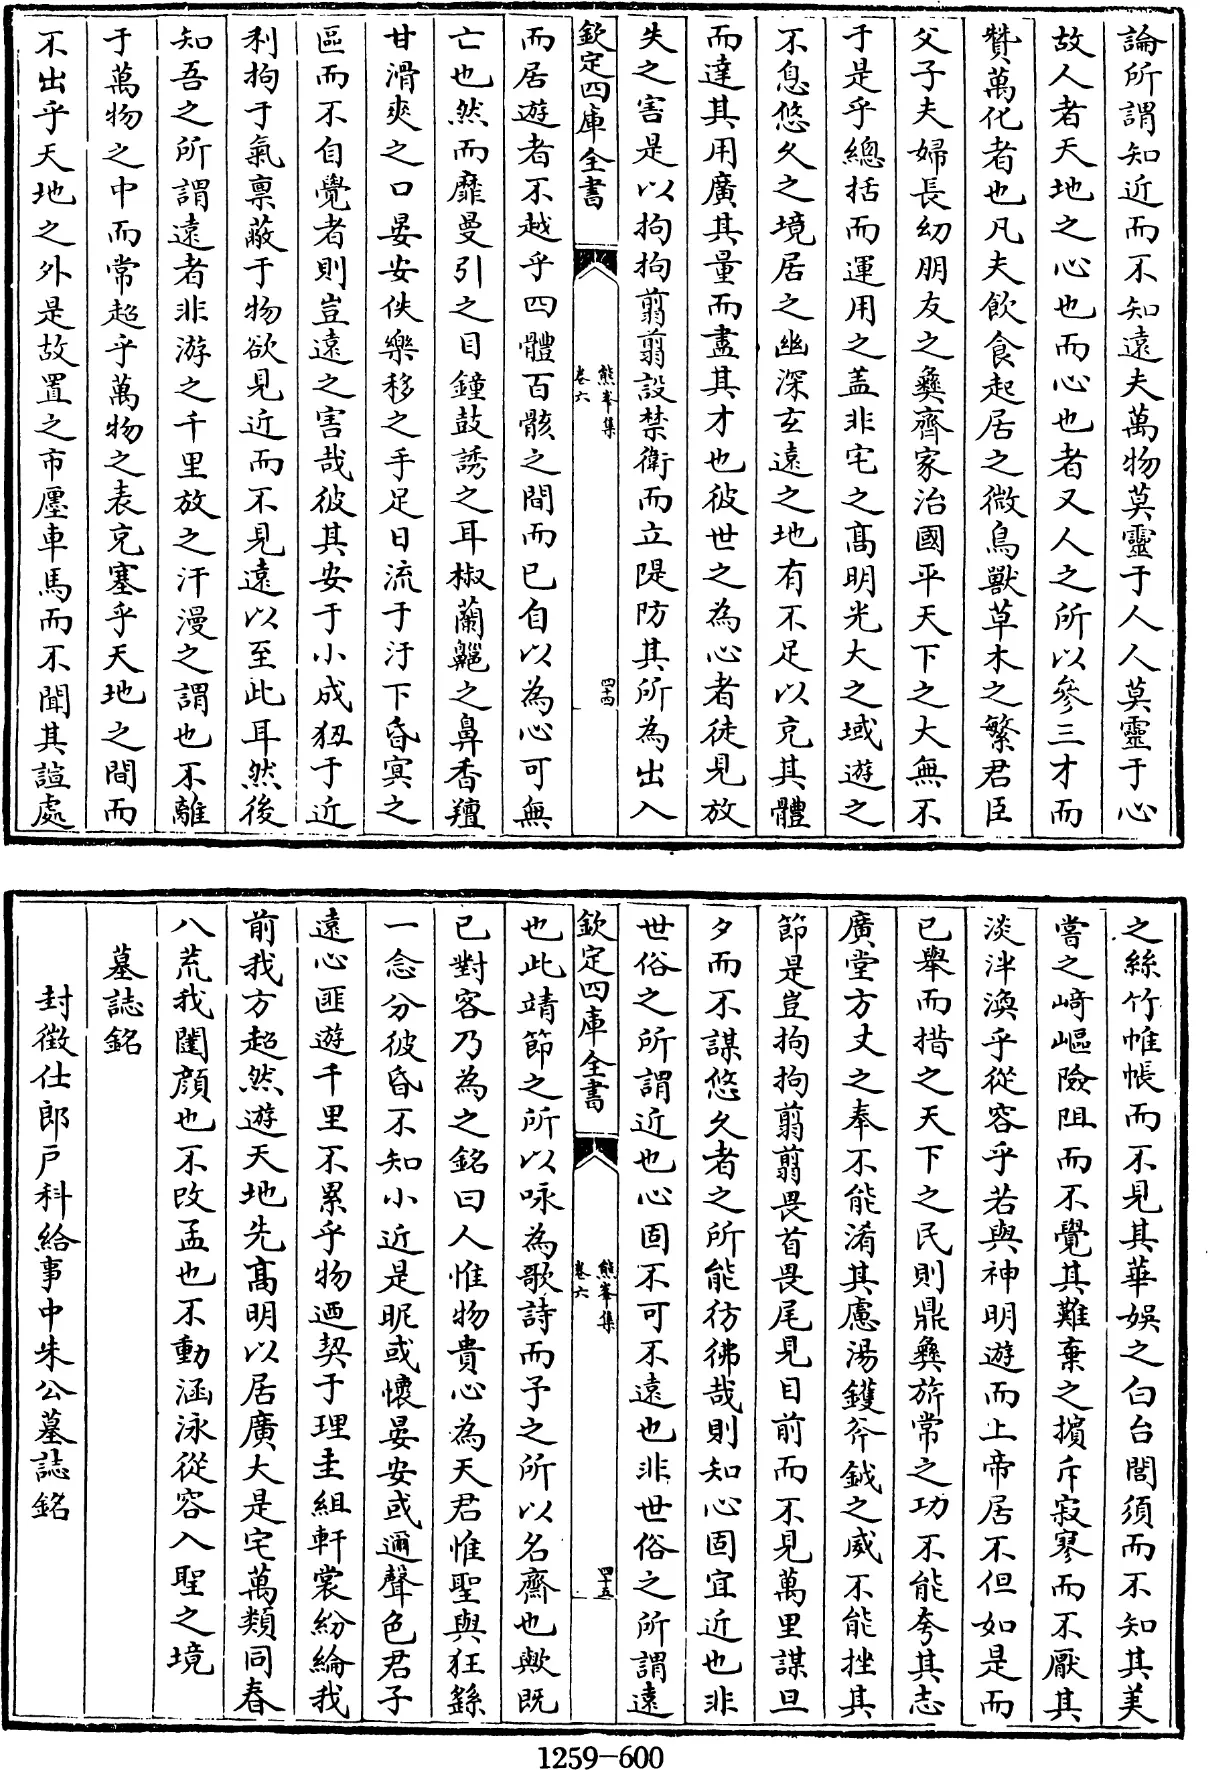 論所謂知近而不知遠夫萬物莫靈于人人莫靈于心
故人者天地之心也而心也者又人之所以參三才而
贊萬化者也凡夫飲食起居之微鳥獸草木之繁君臣
父子夫婦長幼朋友之彝齊家治國平天下之大無不
于是乎總括而運用之蓋非宅之高明光大之域遊之
不息悠久之境居之幽深玄遠之地有不足以充其體
而達其用廣其量而盡其才也彼世之為心者徒見放
失之害是以拘拘翦翦設禁衛而立隄防其所為出入
欽定四庫全書
熊峯集
卷六
四十四
而居遊者不越乎四體百骸之間而已自以為心可無
亡也然而靡曼引之目鐘鼓誘之耳椒蘭齆之鼻香羶
甘滑爽之口晏安佚樂移之手足日流于汙下昏冥之
區而不自覺者則豈遠之害哉彼其安于小成狃于近
利拘于氣禀蔽于物欲見近而不見遠以至此耳然後
知吾之所謂遠者非游之千里放之汗漫之謂也不離
于萬物之中而常超乎萬物之表充塞乎天地之間而
不出乎天地之外是故置之市廛車馬而不聞其諠處
之絲竹帷帳而不見其華娛之白台閭須而不知其美
嘗之﨑嶇險阻而不覺其難棄之擯斥寂寥而不厭其
淡泮渙乎從容乎若與神明遊而上帝居不但如是而
已舉而措之天下之民則鼎彝旂常之功不能夸其志
廣堂方丈之奉不能淆其慮湯鑊斧鉞之威不能挫其
節是豈拘拘翦翦畏首畏尾見目前而不見萬里謀旦
夕而不謀悠久者之所能彷彿哉則知心固宜近也非
世俗之所謂近也心固不可不遠也非世俗之所謂遠
欽定四庫全書
熊峯集
卷六
四十五
也此靖節之所以咏為歌詩而予之所以名齋也歟既
已對客乃為之銘曰人惟物貴心為天君惟聖與狂繇
一念分彼昏不知小近是昵或懷晏安或邇聲色君子
遠心匪遊千里不累乎物迺契于理圭組軒裳紛綸我
前我方超然遊天地先高明以居廣大是宅萬類同春
八荒我闥顏也不改孟也不動涵泳從容入聖之境
墓誌銘
封徵仕郎戶科給事中朱公墓誌銘
1259-600